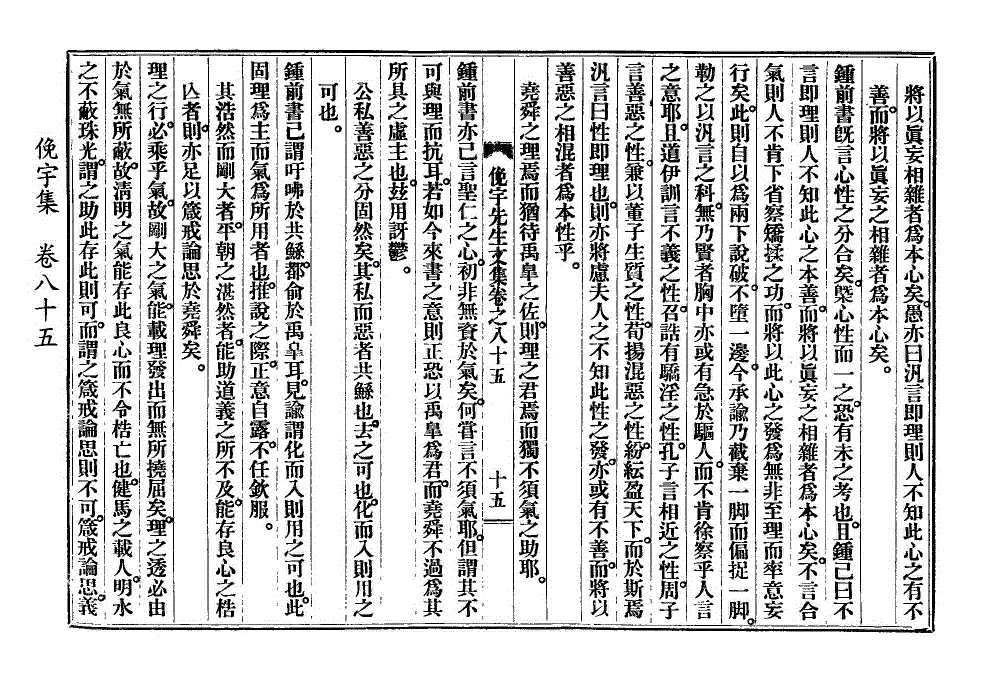 將以眞妄相雜者爲本心矣愚亦曰汎言即理則人不知此心之有不
善而將以眞妄之相雜者爲本心矣。
鍾前書旣言心性之分合矣槩心性而一之恐有未之考也且鍾已曰不
言即理則人不知此心之本善而將以眞妄之相雜者爲本心矣不言合
氣則人不肯下省察矯揉之功而將以此心之發爲無非至理而率意妄
行矣此則自以爲兩下說破不墮一邊今承諭乃截棄一脚而偏捉一脚
勒之以汎言之科無乃賢者胸中亦或有急於驅人而不肯徐察乎人言
之意耶且道伊訓言不義之性召誥有驕淫之性孔子言相近之性周子
言善惡之性兼以董子生質之性荀揚混惡之性紛紜盈天下而於斯焉
汎言曰性即理也則亦將慮夫人之不知此性之發亦或有不善而將以
善惡之相混者爲本性乎。
堯舜之理焉而猶待禹臯之佐則理之君焉而獨不須氣之助耶。
俛宇先生文集卷之八十五 十五
鍾前書亦已言聖仁之心初非無資於氣矣何嘗言不須氣耶但謂其不
可與理而抗耳若如今來書之意則正恐以禹臯爲君而堯舜不過爲其
所具之虛主也玆用訝鬱。
公私善惡之分固然矣其私而惡者共鯀也去之可也化而入則用之
可也。
鍾前書已謂吁咈於共鯀都俞於禹臯耳見諭謂化而入則用之可也此
固理爲主而氣爲所用者也推說之際正意自露不任欽服。
其浩然而剛大者平朝之湛然者能助道義之所不及能存良心之梏
亾者則亦足以箴戒論思於堯舜矣。
理之行必乘乎氣故剛大之氣能載理發出而無所撓屈矣理之透必由
於氣無所蔽故淸明之氣能存此良心而不令梏亡也健馬之載人明水
之不蔽珠光謂之助此存此則可而謂之箴戒論思則不可箴戒論思義
俛宇集 卷八十五